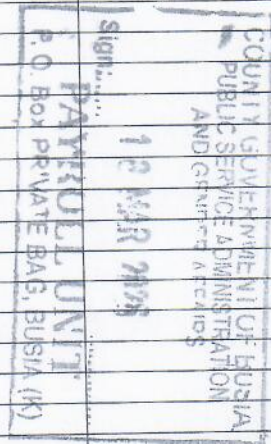 COUNTY GOVERNMENT OF BUSIA
PUBLIC SERVICE ADMINISTRATION
AND GENDER AFFAIRS
18 MAR
Sign:..........
PAYROLL UNIT
P.O. Box PRIVATE BAG, BUSIA (K)